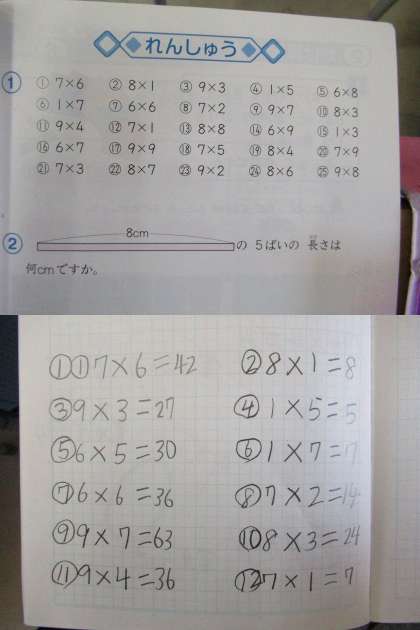 れんしゅう
1 ① 7×6 ② 8×1 ③ 9×3 ④ 1×5 ⑤ 6×8
⑥ 1×7 ⑦ 6×6 ⑧ 7×2 ⑨ 9×7 ⑩ 8×3
⑪ 9×4 ⑫ 7×1 ⑬ 8×8 ⑭ 6×9 ⑮ 1×3
⑯ 6×7 ⑰ 9×9 ⑱ 7×5 ⑲ 8×4 ⑳ 7×9
㉑ 7×3 ㉒ 8×7 ㉓ 9×2 ㉔ 8×6 ㉕ 9×8
8cm
2 の 5ばいの 長さは
何cmですか。
①①7×6=42 ②8×1=8
③9×3=27 ④1×5=5
⑤6×5=30 ⑥1×7=7
⑦6×6=36 ⑧7×2=14
⑨9×7=63 ⑩8×3=24
⑪9×4=36 ⑫7×1=7